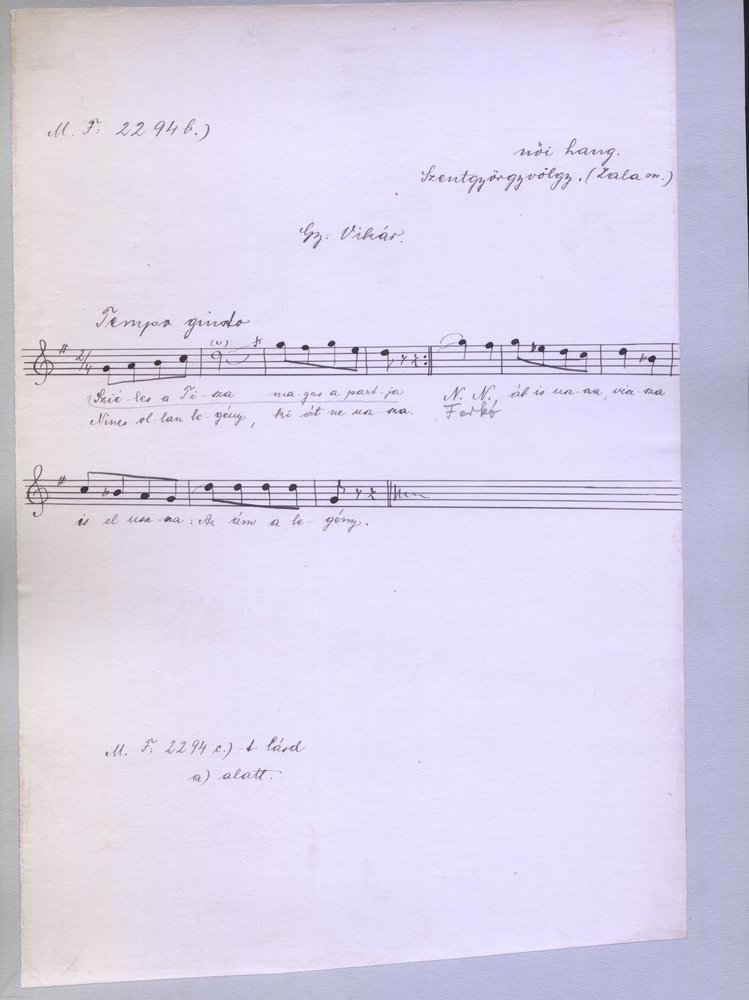 M. F. 2294 b.)
női hang.
Szentgyörgyvölgy. (Zala m.)
Gy: Vikár.
Tempo giusto
2/4
Szé-les a Ti-sza ma-gas a part-ja N. N., át is usz-sza, visz-sza
Nincs ol-lan le-gény, ki át ne usz-sza. Ferkó
is el usz-sza: Az ám a le-gény.
M. F. 2294 c.)-t lásd
a) alatt.